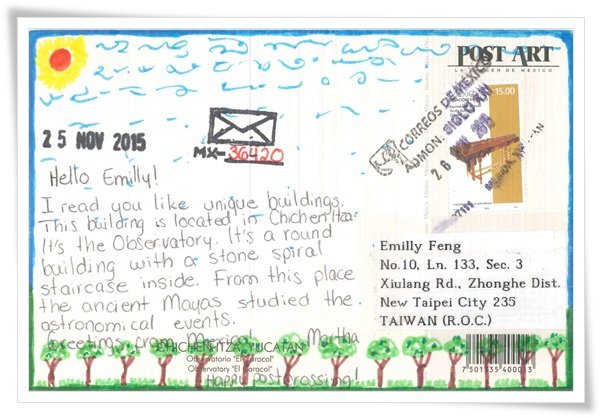 POST ART
LA IMAGEN DE MÉXICO
15.00
CORREOS DE MÉXICO
ADMON. SIGLO XXI
26
2015
25 NOV 2015
MX-36420
Hello Emilly!
I read you like unique buildings.
This building is located in Chichen Itza.
It's the Observatory. It's a round
building with a stone spiral
staircase inside. From this place
the ancient Mayas studied the
astronomical events.
Greetings from Martha
Happy postcrossing!
CHICHEN ITZA, YUCATAN
Observatorio "El Caracol"
Observatory "El Caracol"
Emilly Feng
No.10, Ln. 133, Sec. 3
Xiulang Rd., Zhonghe Dist.
New Taipei City 235
TAIWAN (R.O.C.)
7 501335 400013